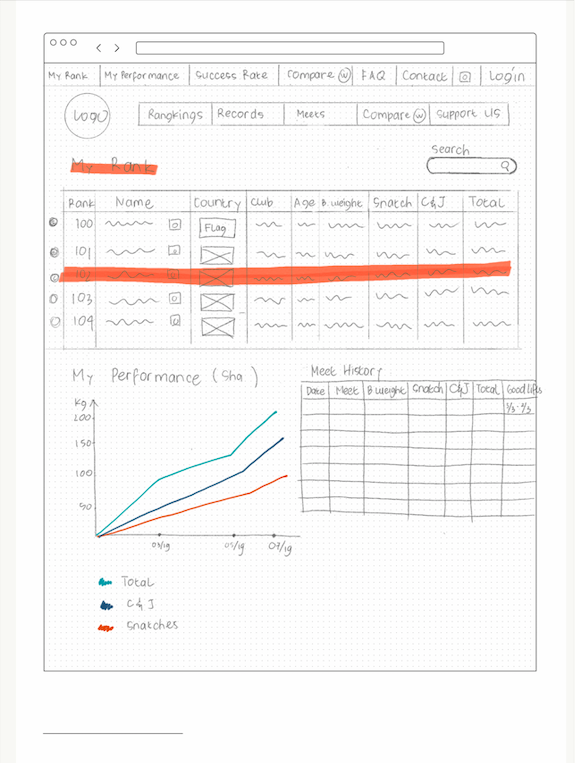 My Rank My Performance Success Rate Compare W FAQ Contact Login
Logo Rangkings Records Meets Compare W Support US
Search
My Rank
Rank Name Country Club Age B.weight Snatch C&J Total
100 Flag
101
102
103
104
My Performance (Sha )
Kg
200
150
100
50
03/19 05/19 07/19
Total
C&J
Snatches
Meet History
Date Meet B weight Snatch C&J Total Good lifts